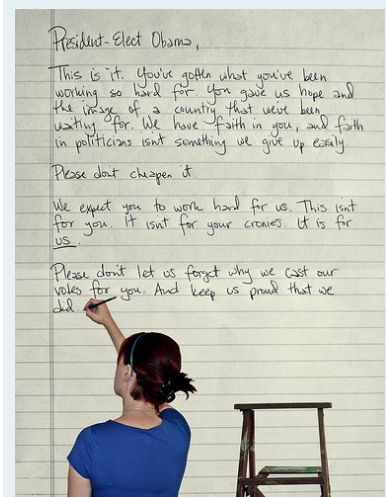 President-Elect Obama,
This is it. You've gotten what you've been
working so hard for. You gave us hope and
the image of a country that we've been
waiting for. We have faith in you, and faith
in politicians isnt something we give up easily.
Please dont cheapen it.
We expect you to work hard for us. This isnt
for you. It isnt for your cronies. It is for
us.
Please don't let us forget why we cast our
votes for you. And keep us proud that we
did.